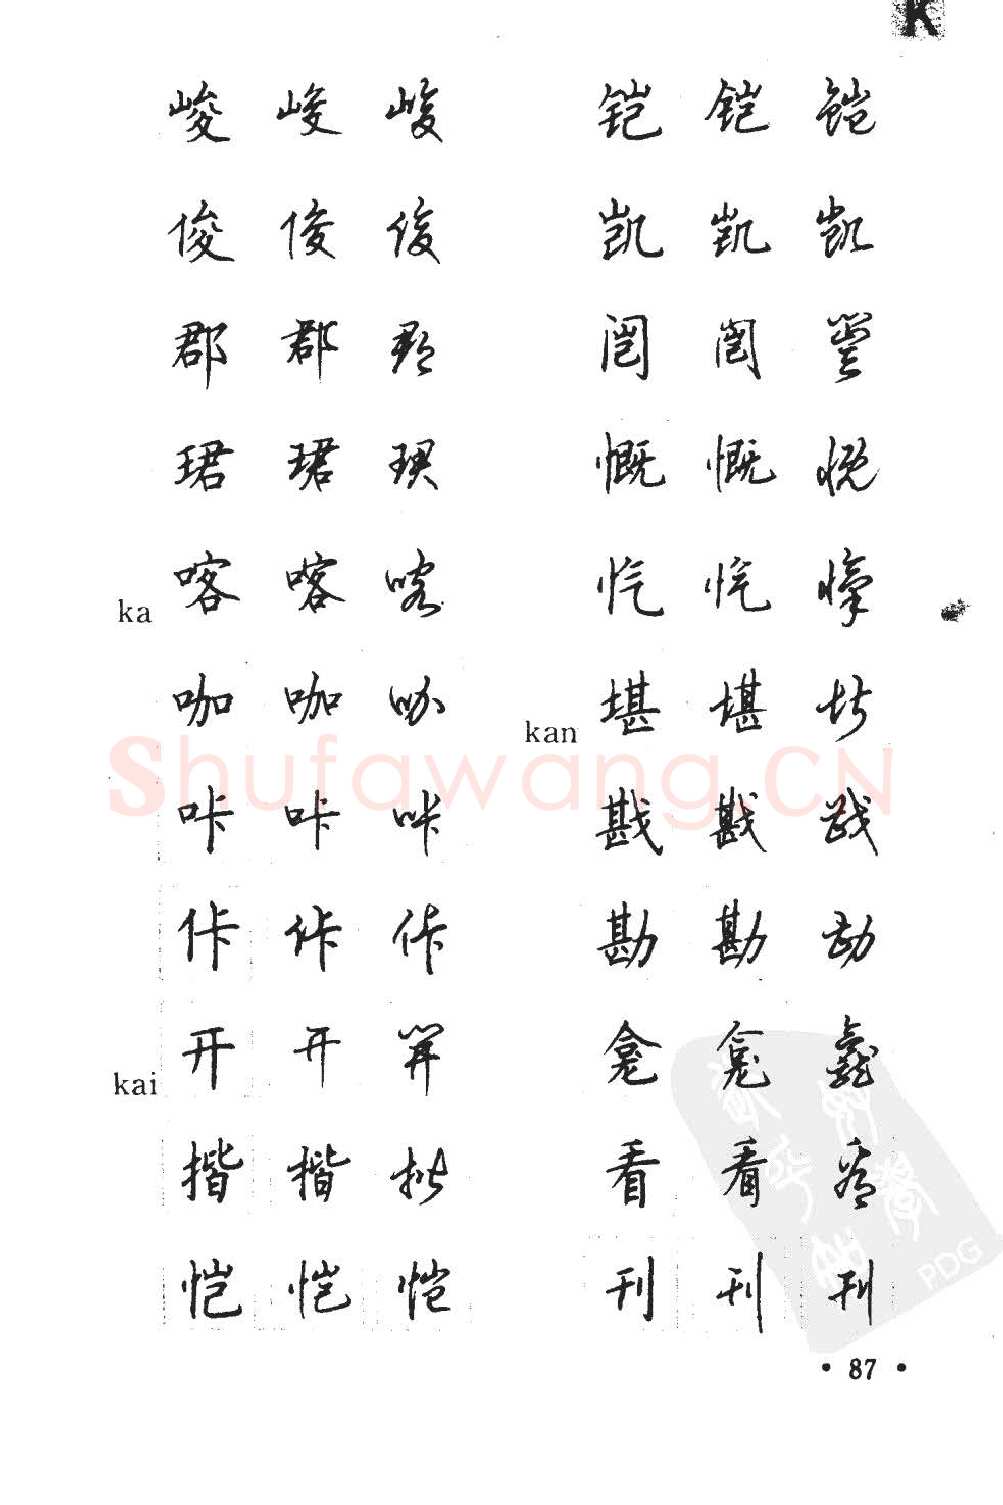 K
峻 峻 峻
俊 俊 俊
郡 郡 郡
珺 珺 珺
ka 喀 喀 喀
咖 咖 咖
咔 咔 咔
佧 佧 佧
kai 开 开 開
揩 揩 揩
恺 恺 恺
铠 铠 铠
凯 凯 凯
闿 闿 闿
慨 慨 慨
忾 忾 愾
kan 堪 堪 堪
戡 戡 戡
勘 勘 勘
龛 龛 龕
看 看 看
刊 刊 刊
Shufawang.CN
PDG
• 87 •